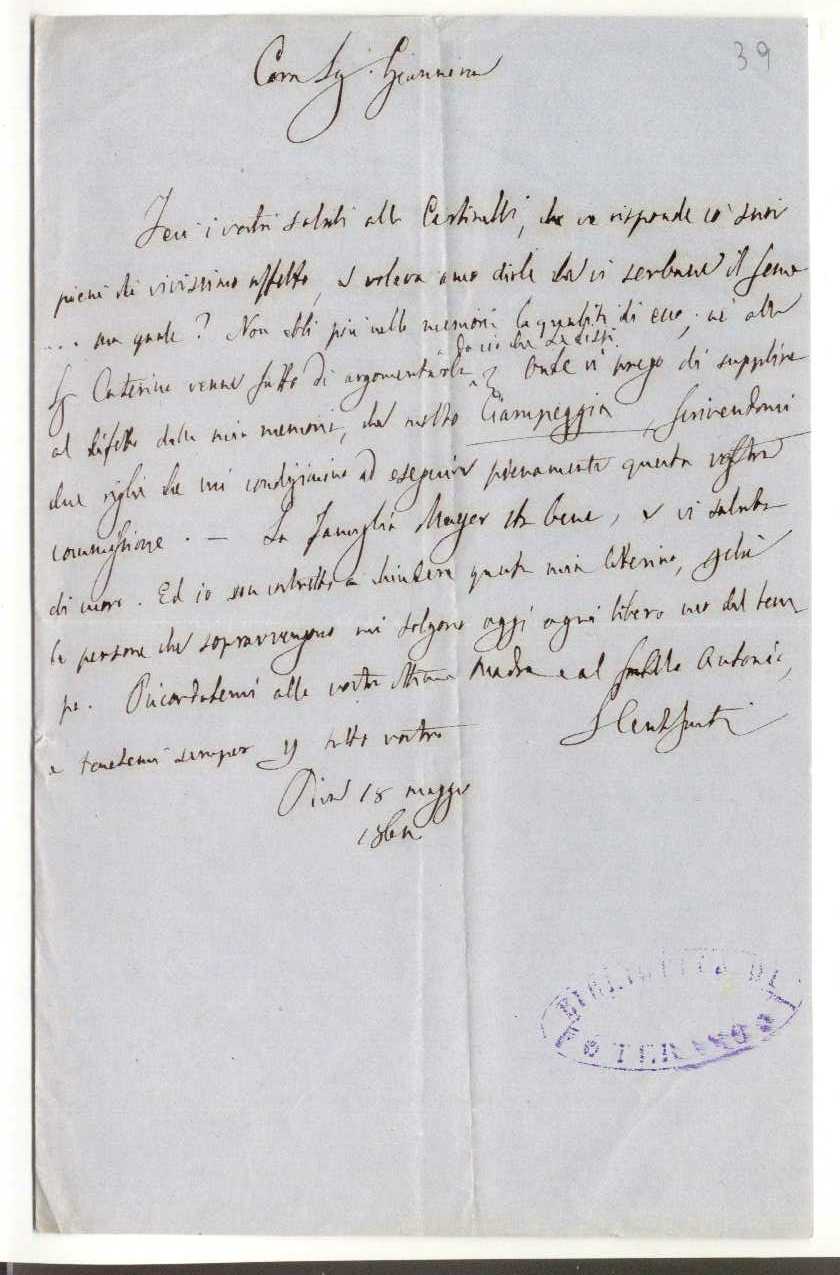 39
Cara Sig. Giannina
Feci i vostri saluti alla, che ve risponde co' suoi
pieni di vivissimo affetto, e voleva anco dirle che vi serbasse il seme
... ma quale? Non ebbi più nella memoria la qualità di esso, nè alla
Sig Caterina venne fatto di argomentarla
da ciò che le dissi.
Onde vi prego di supplire
al difetto della mia memoria, che molto Ciampeggia, scrivendomi
due righe che mi ad eseguire pienamente questa vostra
commissione. — La famiglia Mayer sta bene, e vi saluta
di cuore. Ed io son costretto a chiudere questa mia letterina, giacchè
le persone che sopravvengono mi tolgono oggi ogni libero uso del tem
po. Ricordatemi alla vostra ottima Madre e al Antonio,
e tenetemi sempre tutto vostro
Pisa 18 maggio
BIBLIOTECA DI
TERAMO